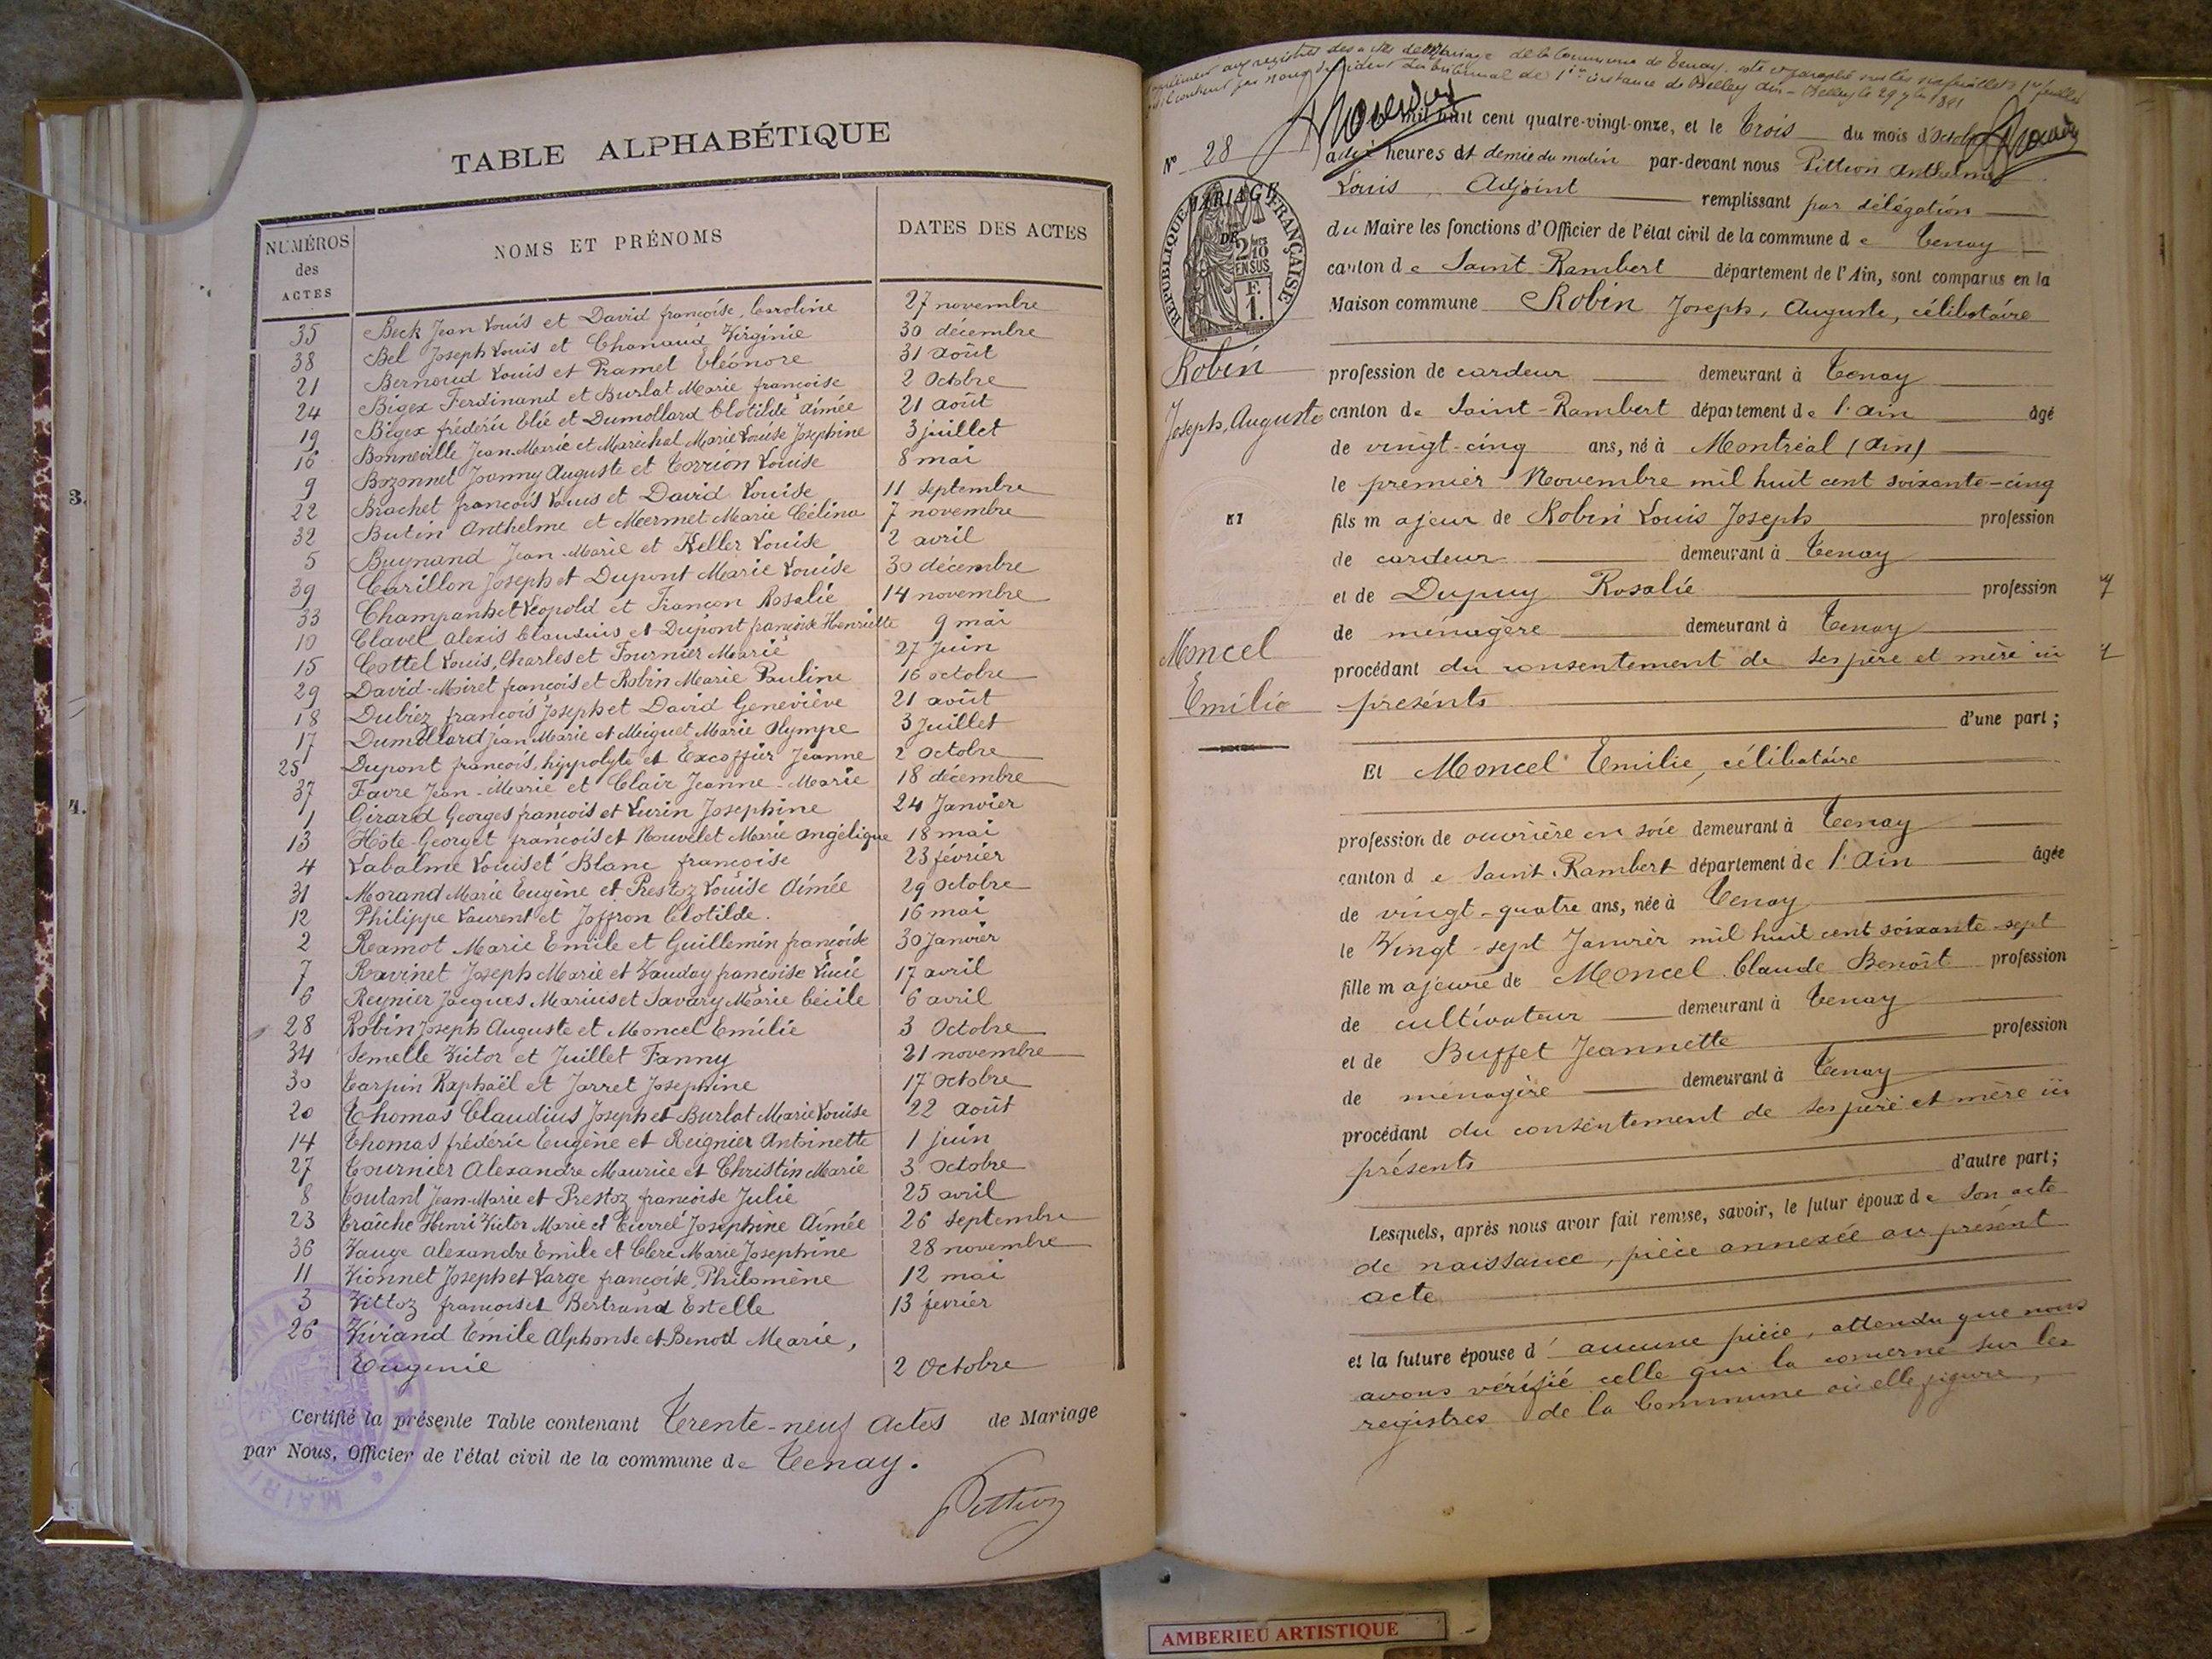 TABLE ALPHABÉTIQUE
NUMÉROS des ACTES
NOMS ET PRÉNOMS
DATES DES ACTES
35 Beck Jean Louis et David françoise, Caroline 27 novembre
38 Bel Joseph Louis et Chanaud Virginie 30 décembre
21 Bernoud Louis et Pramel Eléonore 31 août
24 Bigex Ferdinand et Burlat Marie françoise 2 Octobre
19 Bigex frédéric Elie et Dumollard Clotilde Aimée 21 août
16 Bonneville Jean-Marie et Maréchal Marie Louise Josephine 3 juillet
9 Bozonnet Joanny Auguste et Torrion Louise 8 mai
22 Brachet françois Louis et David Louise 11 septembre
32 Butin Anthelme et Mermet Marie Célina 7 novembre
5 Buynand Jean-Marie et Keller Louise 2 avril
39 Carillon Joseph et Dupont Marie Louise 30 décembre
33 Champanhet Léopold et Françon Rosalie 14 novembre
10 Clavel Alexis Claudius et Dupont françoise Henriette 9 mai
15 Cottel Louis, Charles et Fournier Marie 27 Juin
29 David-Moiret françois et Robin Marie Pauline 16 octobre
18 Dubiez françois Joseph et David Geneviève 21 août
17 Dumollard Jean Marie et Meiguet Marie Olympe 3 Juillet
25 Dupont françois, hippolyte et Excoffier Jeanne 2 Octobre
37 Favre Jean-Marie et Clair Jeanne-Marie 18 décembre
1 Girard Georges françois et Lurin Josephine 24 Janvier
13 Hôte-Georget françois et Nouvelet Marie Angélique 18 mai
4 Labalme Louis et Blanc françoise 23 février
31 Morand Marie Eugène et Prestoz Louise Aimée 29 Octobre
12 Philippe Laurent et Joffron Clotilde. 16 mai
2 Ramot Marie Emile et Guillemin françoise 30 Janvier
7 Ravinet Joseph Marie et Vauday françoise Lucie 17 avril
6 Reynier Jacques Marius et Savary Marie Cécile 6 avril
28 Robin Joseph Auguste et Moncel Emilie 3 Octobre
34 Semelle Victor et Juillet Fanny 21 novembre
30 Tarpin Raphaël et Jarret Josephine 17 Octobre
20 Thomas Claudius Joseph et Burlat Marie Louise 22 Août
14 Thomas frédéric Eugène et Reignier Antoinette 1 Juin
27 Tournier Alexandre Maurice et Christin Marie 3 Octobre
8 Toutant Jean-Marie et Prestoz françoise Julie 25 avril
23 Traîche Henri Victor Marie et Pierrel Josephine Aimée 26 Septembre
36 Vauge Alexandre Emile et Clerc Marie Josephine 28 novembre
11 Vionnet Joseph et Large françoise, Philomène 12 mai
3 Vittoz françois et Bertrand Estelle 13 février
26 Viviand Emile Alphonse et Benoit Marie,
Eugenie 2 Octobre
Certifié la présente Table contenant Trente-neuf Actes de Mariage
par Nous, Officier de l'état civil de la commune de Tenay.
Pittion
3.
4.
Nº 28
mil huit cent quatre-vingt-onze, et le Trois du mois d'Octobre
à dix heures et demie du matin par-devant nous Pittion Anthelme
Louis, Adjoint remplissant par délégation
du Maire les fonctions d'Officier de l'état civil de la commune de Tenay
canton de Saint-Rambert département de l'Ain, sont comparus en la
Maison commune Robin Joseph, Auguste, célibataire
RÉPUBLIQUE FRANÇAISE
MARIAGE
DE
2/10
EN SUS
F.
1.
Robin
Joseph, Auguste
Moncel
Emilie
profession de cardeur demeurant à Tenay
canton de Saint-Rambert département de l'Ain âgé
de vingt-cinq ans, né à Montréal (Ain)
le premier Novembre mil huit cent soixante-cinq
fils majeur de Robin Louis Joseph profession
de cardeur demeurant à Tenay
et de Dupuy Rosalie profession
de ménagère demeurant à Tenay
procédant du consentement de ses père et mère ici
présents
d'une part;
Et Moncel Emilie, célibataire
profession de ouvrière en soie demeurant à Tenay
canton de Saint-Rambert département de l'Ain âgée
de vingt-quatre ans, née à Tenay
le Vingt-sept Janvier mil huit cent soixante-sept
fille majeure de Moncel Claude Benoît profession
de cultivateur demeurant à Tenay
et de Buffet Jeannette profession
de ménagère demeurant à Tenay
procédant du consentement de ses père et mère ici
présents
d'autre part;
Lesquels, après nous avoir fait remise, savoir, le futur époux de son acte
de naissance, pièce annexée au présent
acte
et la future épouse d'aucune pièce, attendu que nous
avons vérifié celle qui la concerne sur les
registres de la Commune où elle figure,
AMBERIEU ARTISTIQUE